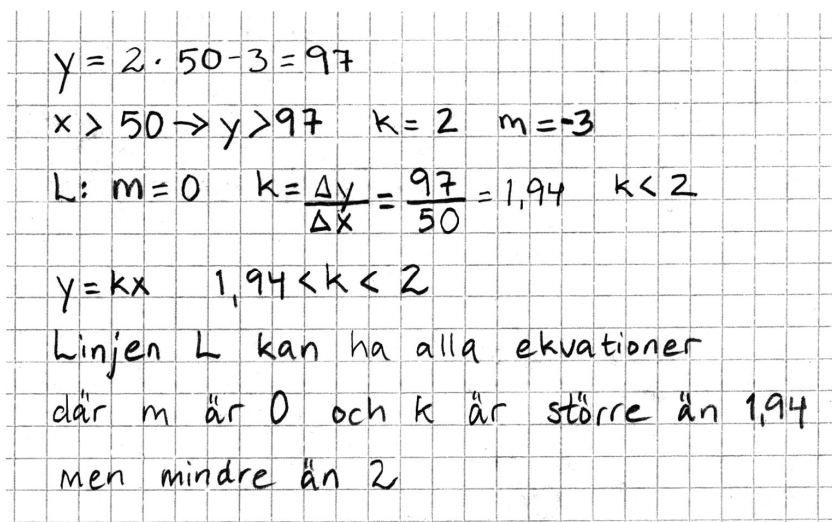 y = 2 · 50 - 3 = 97
x > 50 → y > 97 k = 2 m = -3
L: m = 0 k = Δy/Δx = 97/50 = 1,94 k < 2
y = kx 1,94 < k < 2
Linjen L kan ha alla ekvationer
där m är 0 och k är större än 1,94
men mindre än 2